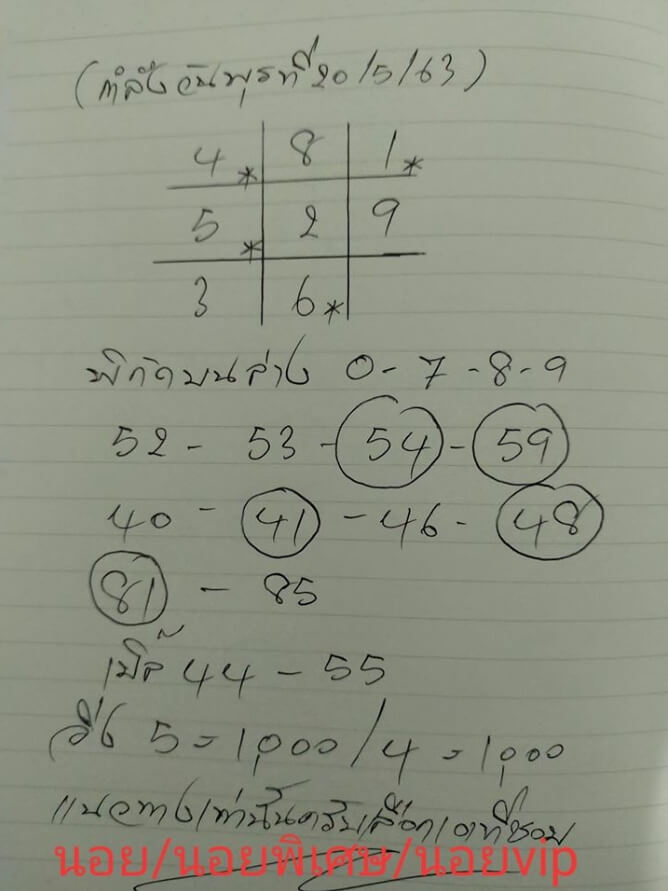 (กำลังวันพุธที่ 20/5/63)
4* 8 1*
5* 2 9
3 6*
พิกัดบนล่าง 0-7-8-9
52 - 53 - 54 - 59
40 - 41 - 46 - 48
81 - 85
เบิ้ล 44 - 55
วิ่ง 5 = 1,000 / 4 = 1,000
แนวทางเท่านั้นครับเลือกเอาที่ชอบ
นอย/นอยพิเศษ/นอยvip